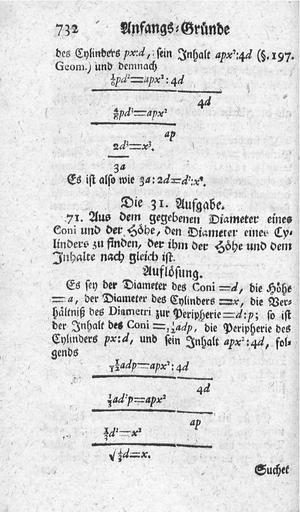 732 Anfangs-Gründe
des Cylinders px:d, sein Inhalt apx²:4d (§. 197.
Geom.) und demnach
pd³=apx²:4d
4d
pd³=apx²
ap
2d³=x².
3a
Es ist also wie 3a:2d=d²:x².
Die 31. Aufgabe.
71. Aus dem gegebenen Diameter eines
Coni und der Höhe, den Diameter eines Cy-
linders zu finden, der ihm der Höhe und dem
Inhalte nach gleich ist.
Auflösung.
Es sey der Diameter des Coni =d, die Höhe
=a, der Diameter des Cylinders =x, die Ver-
hältniß des Diametri zur Peripherie =d:p; so ist
der Inhalt des Coni =1/12adp, die Peripherie des
Cylinders px:d, und sein Inhalt apx²:4d, fol-
gends
1/12adp=apx²:4d
4d
1/3ad²p=apx²
ap
1/3d²=x²
√1/3d=x.
Suchet